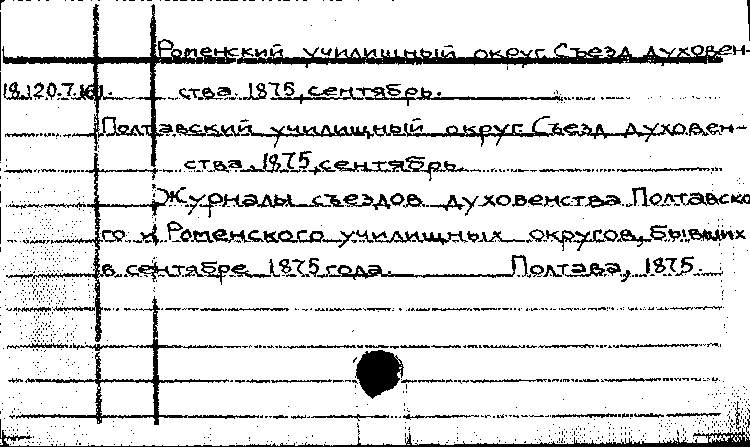 Роменский училищный округ. Съезд духовен-
18.120.7.161. ства. 1875, сентябрь.
Полтавский училищный округ. Съезд духовен-
ства. 1875, сентябрь.
Журналы съездов духовенства Полтавско
го и Роменского училищных округов, бывших
в сентябре 1875 года. Полтава, 1875.